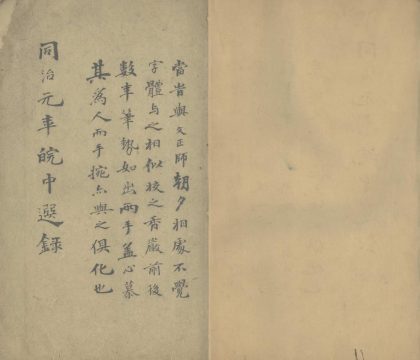 當者與文正師朝夕相處不覺
字體与之相似校之香嚴前後
數年筆貌如出兩手蓋心慕
其為人而手捥亦與之俱化也
同治元年皖中選錄